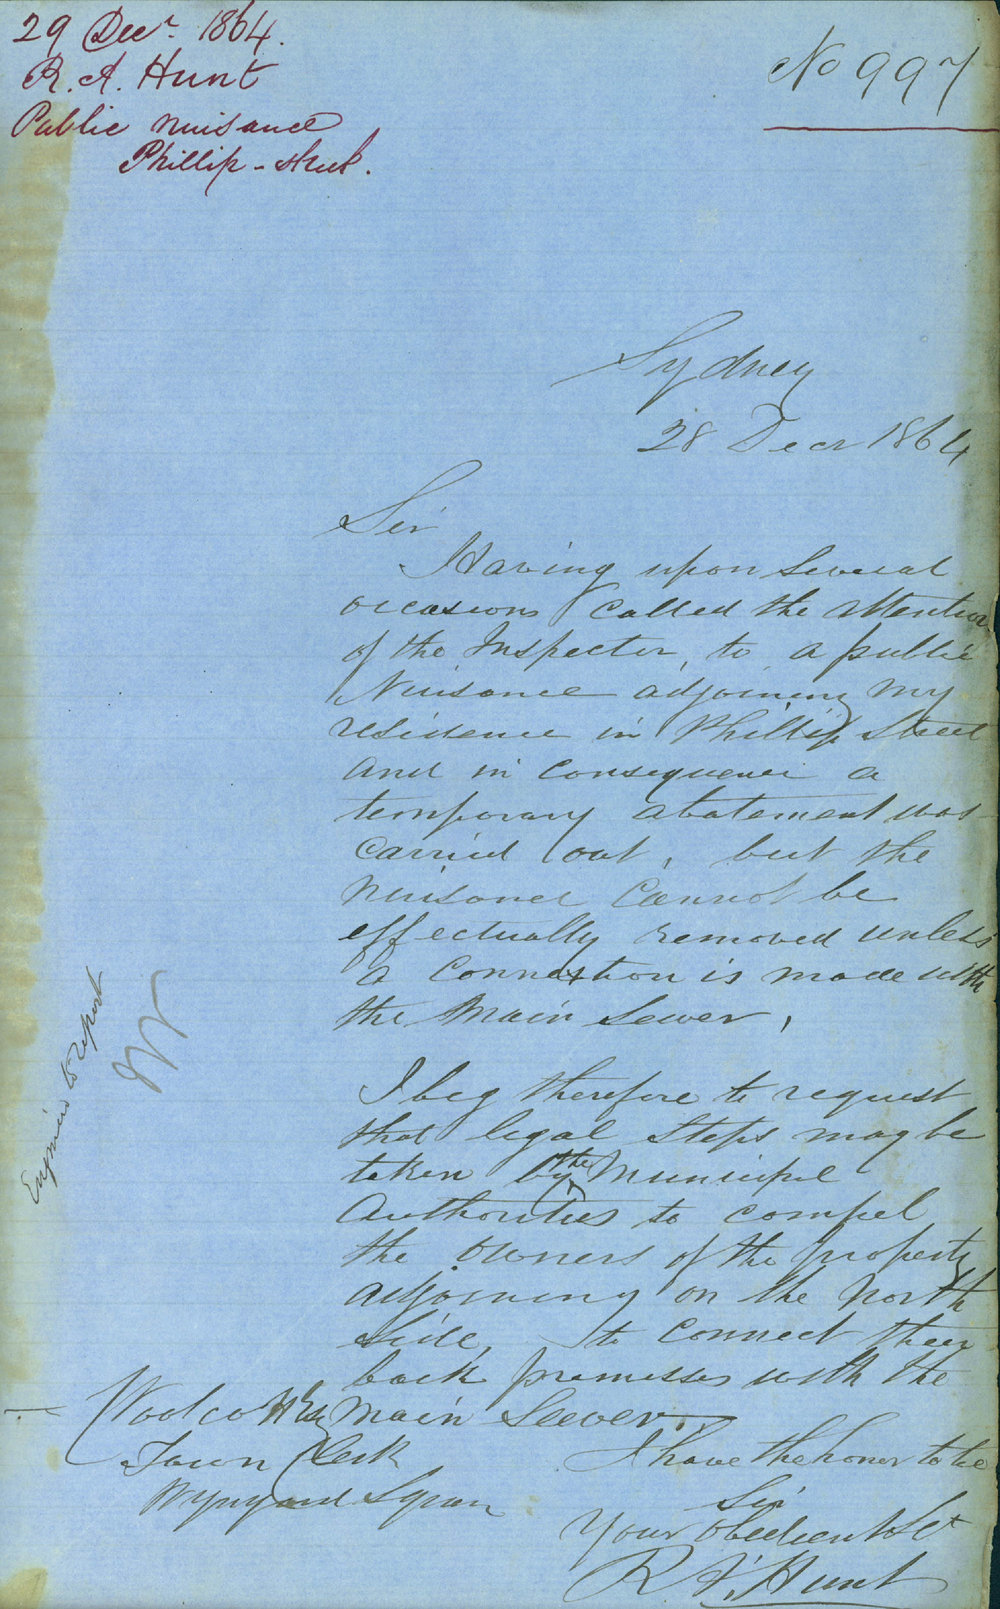 29 Decr. 1864.
R. A. Hunt
Public nuisance
Phillip-street.
No 997
Sydney
28 Decr 1864
Sir
Having upon several
occasions called the attention
of the Inspector, to a public
Nuisance adjoining my
residence in Phillip Street
and in consequence a
temporary abatement was
carried out, but the
nuisance cannot be
effectually removed unless
a connection is made with
the Main Sewer,
I beg therefore to request
that legal steps may be
taken by the Municipal
Authorities to compel
the owners of the property
adjoining on the North
Side, to connect their
back premises with the
Main Sewer.
I have the honor to be
Sir
Your obedient St
R A Hunt
Woolcott Esq
Town Clerk
Wynyard Square
Engineer to report